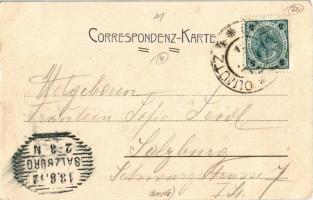 CORRESPONDENZ-KARTE
OLMÜTZ
Wolgeboren
Fräulein Sofie Seidl
Salzburg
Schwarzstrasse 7
I St.
SALZBURG